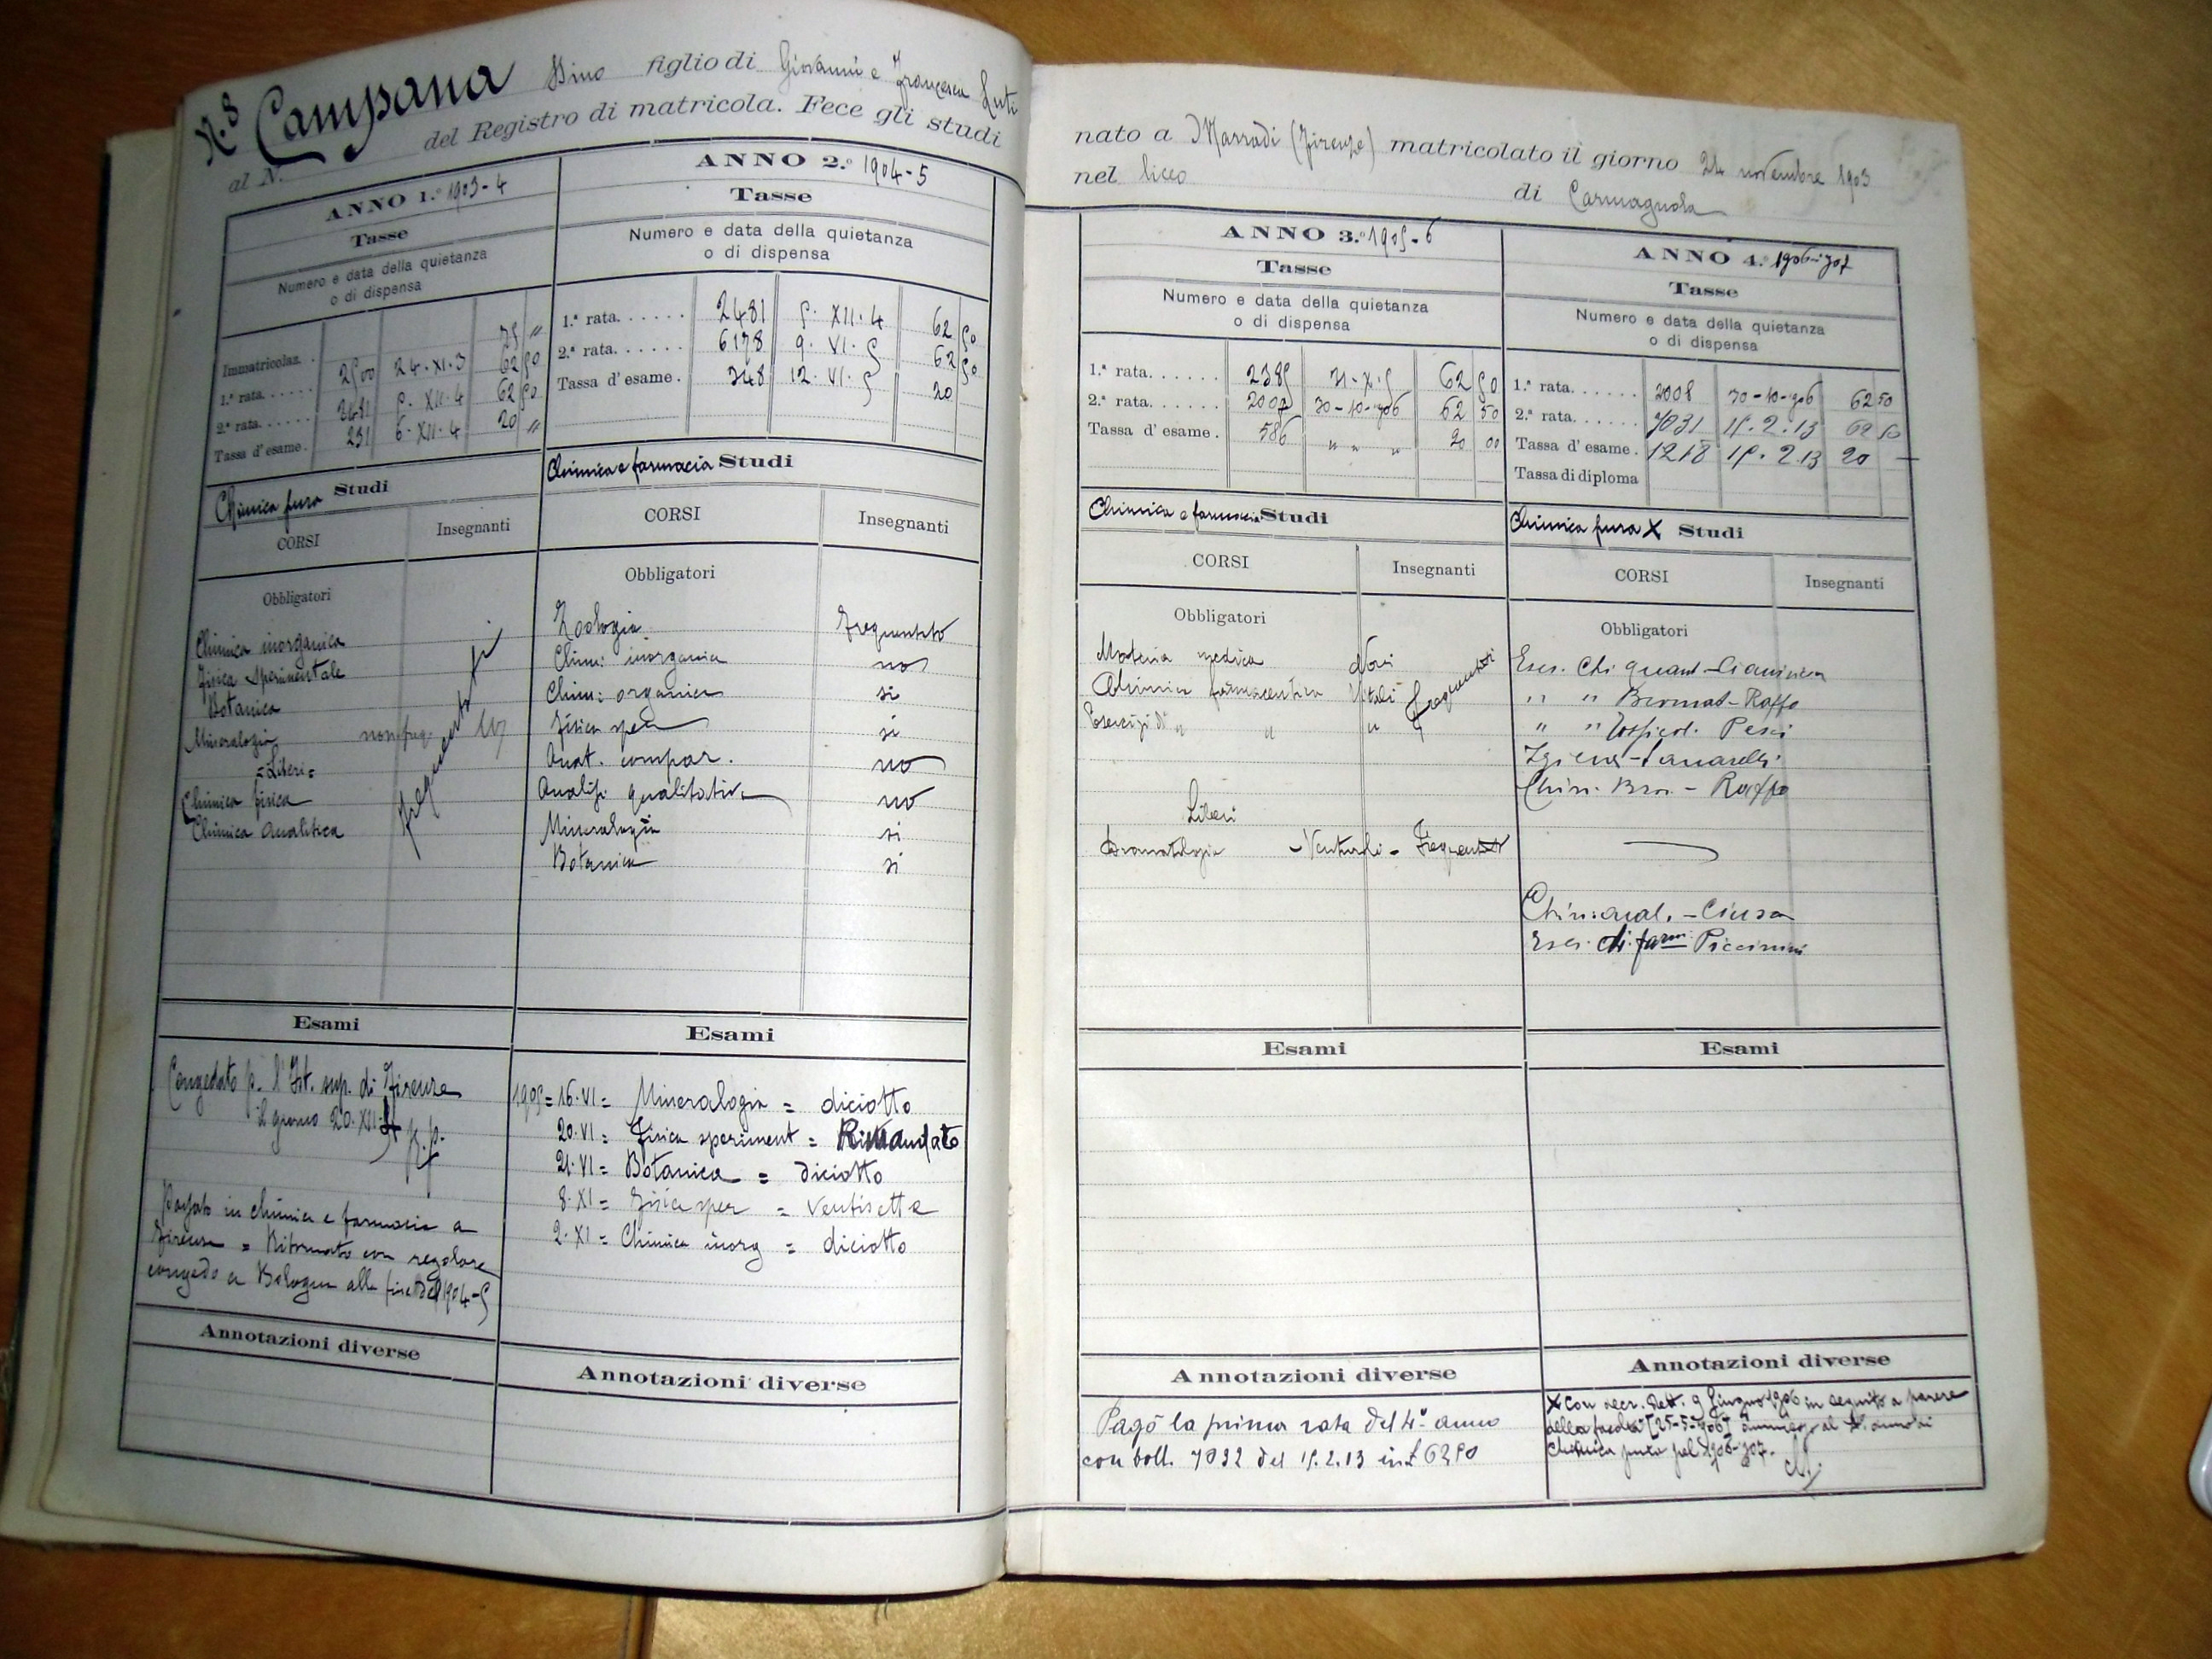 N.8 Campana Dino figlio di Giovanni e Francesca Luti
al N. del Registro di matricola. Fece gli studi
ANNO 1.º 1903-4
Tasse
Numero e data della quietanza
o di dispensa
Immatricolaz. . 75 "
1.ª rata. . . . . 2500 24·XI·3 62 50
2.ª rata. . . . . 2481 5·XII·4 62 50
Tassa d'esame. 231 6·XII·4 20 "
Chimica pura Studi
CORSI Insegnanti
Obbligatori
Chimica inorganica
Fisica Sperimentale
Botanica
Mineralogia non freq.
=Liberi=
Chimica fisica
Chimica analitica
Esami
Congedato p. l'Ist. sup. di Firenze
il giorno 20·XII·4
Passato in chimica e farmacia a
Firenze = Ritornato con regolare
congedo a Bologna alla fine del 1904-5
Annotazioni diverse
ANNO 2.º 1904-5
Tasse
Numero e data della quietanza
o di dispensa
1.ª rata. . . . . . 2481 5· XII·4 62 50
2.ª rata. . . . . . 6178 9· VI· 5 62 50
Tassa d'esame . 348 12· VI· 5 20
Chimica e farmacia Studi
CORSI Insegnanti
Obbligatori
Zoologia Frequentato
Chim: inorganica no
Chim: organica si
Fisica sper si
Anat. compar. no
Analisi qualitativa no
Mineralogia si
Botanica si
Esami
1905=16·VI= Mineralogia = diciotto
20·VI= Fisica speriment = Rimandato
21·VI= Botanica = diciotto
8·XI= Fisica sper = Ventisette
2·XI= Chimica inorg = diciotto
Annotazioni diverse
nato a Marradi (Firenze) matricolato il giorno 24 novembre 1903
nel liceo di Carmagnola
ANNO 3.º 1905-6
Tasse
Numero e data della quietanza
o di dispensa
1.ª rata. . . . . . 2385 31-X·5 62 50
2.ª rata. . . . . . 2007 30-10-906 62 50
Tassa d'esame . 586 " " " 20 00
Chimica e farmacia Studi
CORSI Insegnanti
Obbligatori
Materia medica Novi
Chimica farmaceutica Vitali frequentati
Esercizi di " " "
Liberi
Bromatologia - Venturoli - Frequentato
Esami
Annotazioni diverse
Pagò la prima rata del 4º anno
con boll. 7032 del 15.2.13 in £ 62,50
ANNO 4.º 1906-907
Tasse
Numero e data della quietanza
o di dispensa
1.ª rata. . . . . . 2008 30-10-906 62 50
2.ª rata. . . . . . 7031 15.2.13 62 50
Tassa d'esame . 1218 15.2.13 20 —
Tassa di diploma
Chimica pura X Studi
CORSI Insegnanti
Obbligatori
Eser. Chi quant - Ciamician
" " Bromat - Raffo
" " Tossicol. Pesci
Igiene - Sanarelli
Chim. Bro. - Raffo
Chim: anal. - Ciusa
Eser. ch. farm. Piccinini
Esami
Annotazioni diverse
X con decr. Rett. 9 Giugno 1906 in seguito a parere
della facoltà [25-5-906] ammesso al 4º anno di
Chimica pura pel 1906-907.